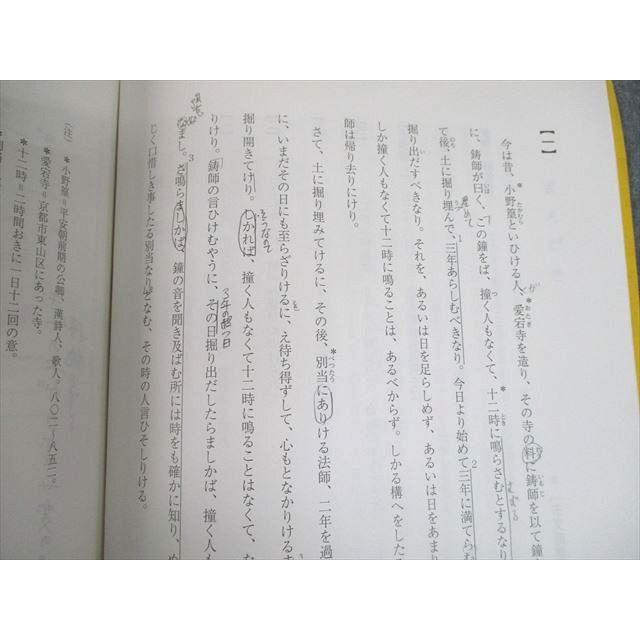 【一】
今は昔、小野篁といひける人、愛宕寺を造り、その寺の料に鋳師を以て鐘
に、鋳師が曰く、この鐘をば、撞く人もなくて、十二時に鳴らさむとするなり
て後、土に掘り埋んで、三年あらしむべきなり。今日より始めて三年に満てらむ
掘り出だすべきなり。それを、あるいは日を足らしめず、あるいは日をあまり
しか撞く人もなくて十二時に鳴ることは、あるべからず。しかる構へをしたる
師は帰り去りにけり。
さて、土に掘り埋みてけるに、その後、別当にありける法師、二年を過
に、いまだその日にも至らざりけるに、え待ち得ずして、心もとなかりけるま
掘り開きてけり。しかれば、撞く人もなくて十二時に鳴ることはなくて、た
りけり。鋳師の言ひけむやうに、その日掘り出だしたらましかば、撞く人も
なまし。さ鳴らましかば、鐘の音を聞き及ばむ所には時をも確かに知り、め
じく口惜しき事したる別当なりとなむ、その時の人言ひそしりける。
(注)
*小野篁=平安朝前期の公卿、漢詩人、歌人。八〇二~八五二。
*愛宕寺=京都市東山区にあった寺。
*十二時=二時間おきに一日十二回の意。